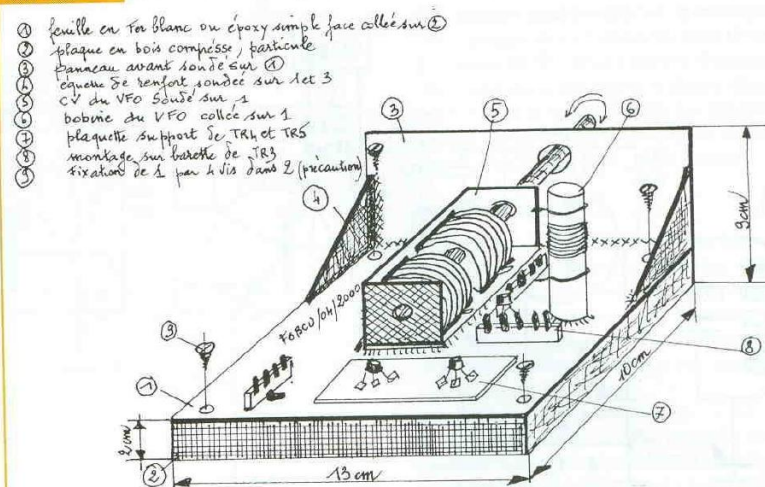 ① feuille en fer blanc ou époxy simple face collée sur ②
② plaque en bois compressé, particule
③ panneau avant soudé sur ①
④ équerre de renfort soudée sur 1 et 3
⑤ CV du VFO soudé sur 1
⑥ bobine du VFO collée sur 1
⑦ plaquette support de TR4 et TR5
⑧ montage sur barette de TR3
⑨ fixation de 1 par 4 vis dans 2 (précaution)
③
⑤
⑥
④
9cm
F6BCU/04/2000
⑨
⑧
①
10cm
⑦
2cm
②
13cm